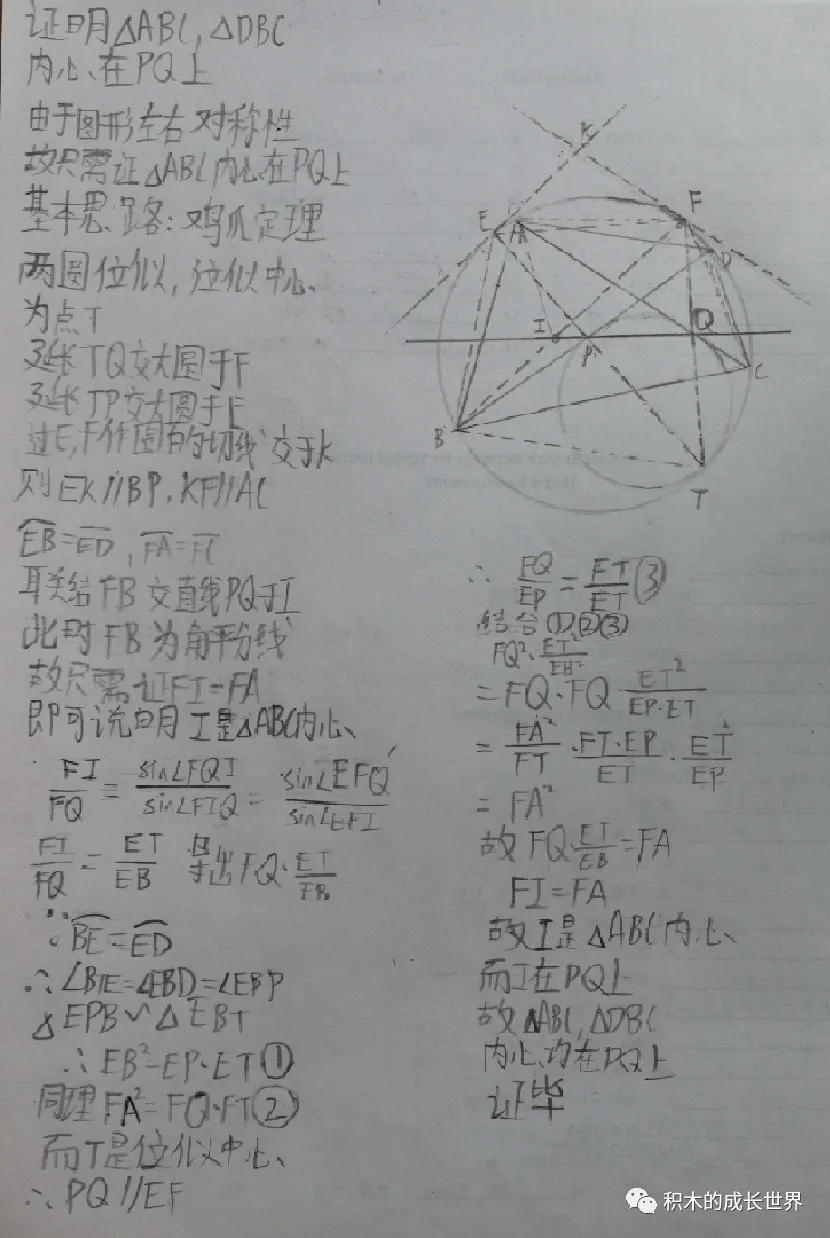 证明△ABC,△DBC
内心在PQ上
由于图形左右对称性
故只需证△ABC内心在PQ上
基本思路:鸡爪定理
两圆位似,位似中心
为点T
延长TQ交大圆于F
延长TP交大圆于E
过E,F作圆的切线交于K
则EK//BP.KF//AC
EB=ED,FA=FC
联结FB交直线PQ于I
此时FB为角平分线
故只需证FI=FA
即可说明I是△ABC内心
FI/FQ=sin∠FQI/sin∠FIQ=sin∠EFQ/sin∠EFI
FI/FQ=ET/EB 导出FQ·ET/EB
∵BE=ED
∴∠BTE=∠EBD=∠EBP
△EPB∽△EBT
∴EB²=EP·ET①
同理FA²=FQ·FT②
而T是位似中心
∴PQ//EF
K
E
A
F
D
I
P
Q
C
B
T
∴FQ/EP=FT/ET③
结合①②③
FQ²·ET²/EB²
=FQ·FQ·ET²/EP·ET
=FA²/FT·FT·EP/ET·ET/EP
=FA²
故FQ·ET/EB=FA
FI=FA
故I是△ABC内心
而I在PQ上
故△ABC,△DBC
内心均在PQ上
证毕
积木的成长世界